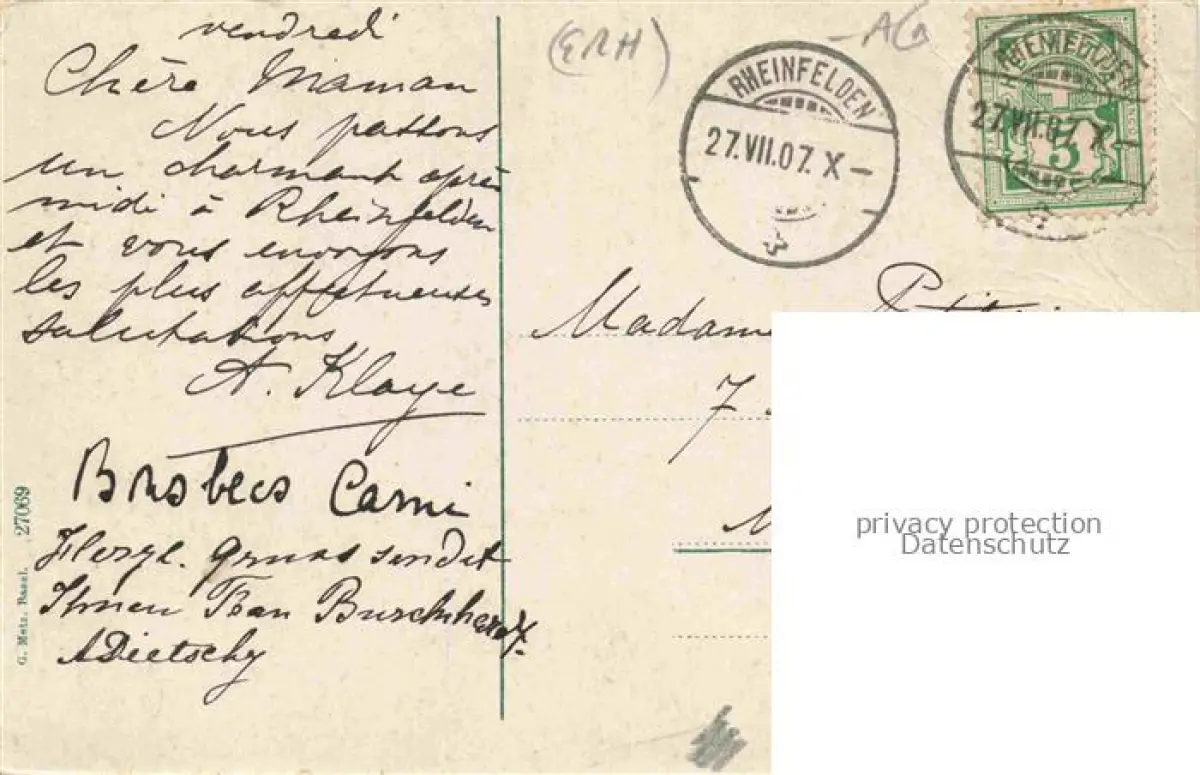 vendredi
Chère Maman
Nous passons
un charmant après
midi à Rheinfelden
et vous envoyons
les plus affectueuses
salutations
A. Klaye
Carmi
Herzl. Gruss sendet
Ihnen Frau Burckhardt.
A Dietschy
G. Metz. Basel. 27069
(ERH)
AG
RHEINFELDEN
27.VII.07. X
27.VII.07. X
5
Madame
7
privacy protection
Datenschutz